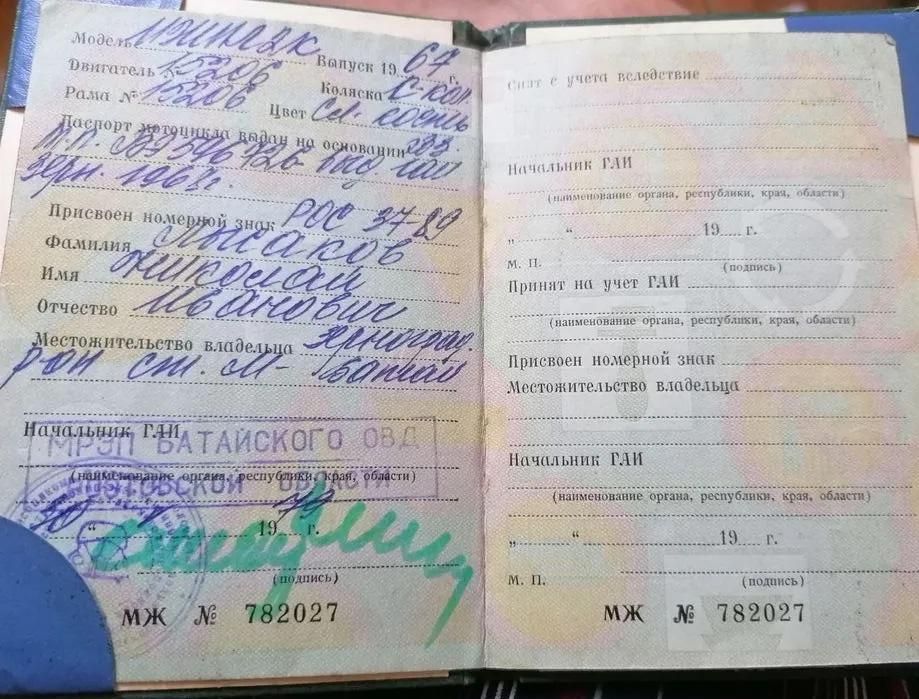 Модель ИЖЮП2К Выпуск 19 67 г.
Двигатель № 15206 Коляска
Рама № 15206 Цвет
Паспорт мотоцикла выдан на основании
зерн. 1968г.
Присвоен номерной знак РОС 37-89
Фамилия Лысаков
Имя Николай
Отчество Иванович
Местожительство владельца Зерноград.
р-он ст. М-
Начальник ГАИ
МРЭП БАТАЙСКОГО ОВД
(наименование органа, республики, края, области)
РОСТОВСКОЙ ОБЛАСТИ
„ 30 “ 19 79 г.
(подпись)
МЖ № 782027
Снят с учета вследствие
Начальник ГАИ
(наименование органа, республики, края, области)
„ “ 19 г.
М. П. (подпись)
Принят на учет ГАИ
(наименование органа, республики, края, области)
Присвоен номерной знак
Местожительство владельца
Начальник ГАИ
(наименование органа, республики, края, области)
„ “ 19 г.
М. П. (подпись)
МЖ № 782027